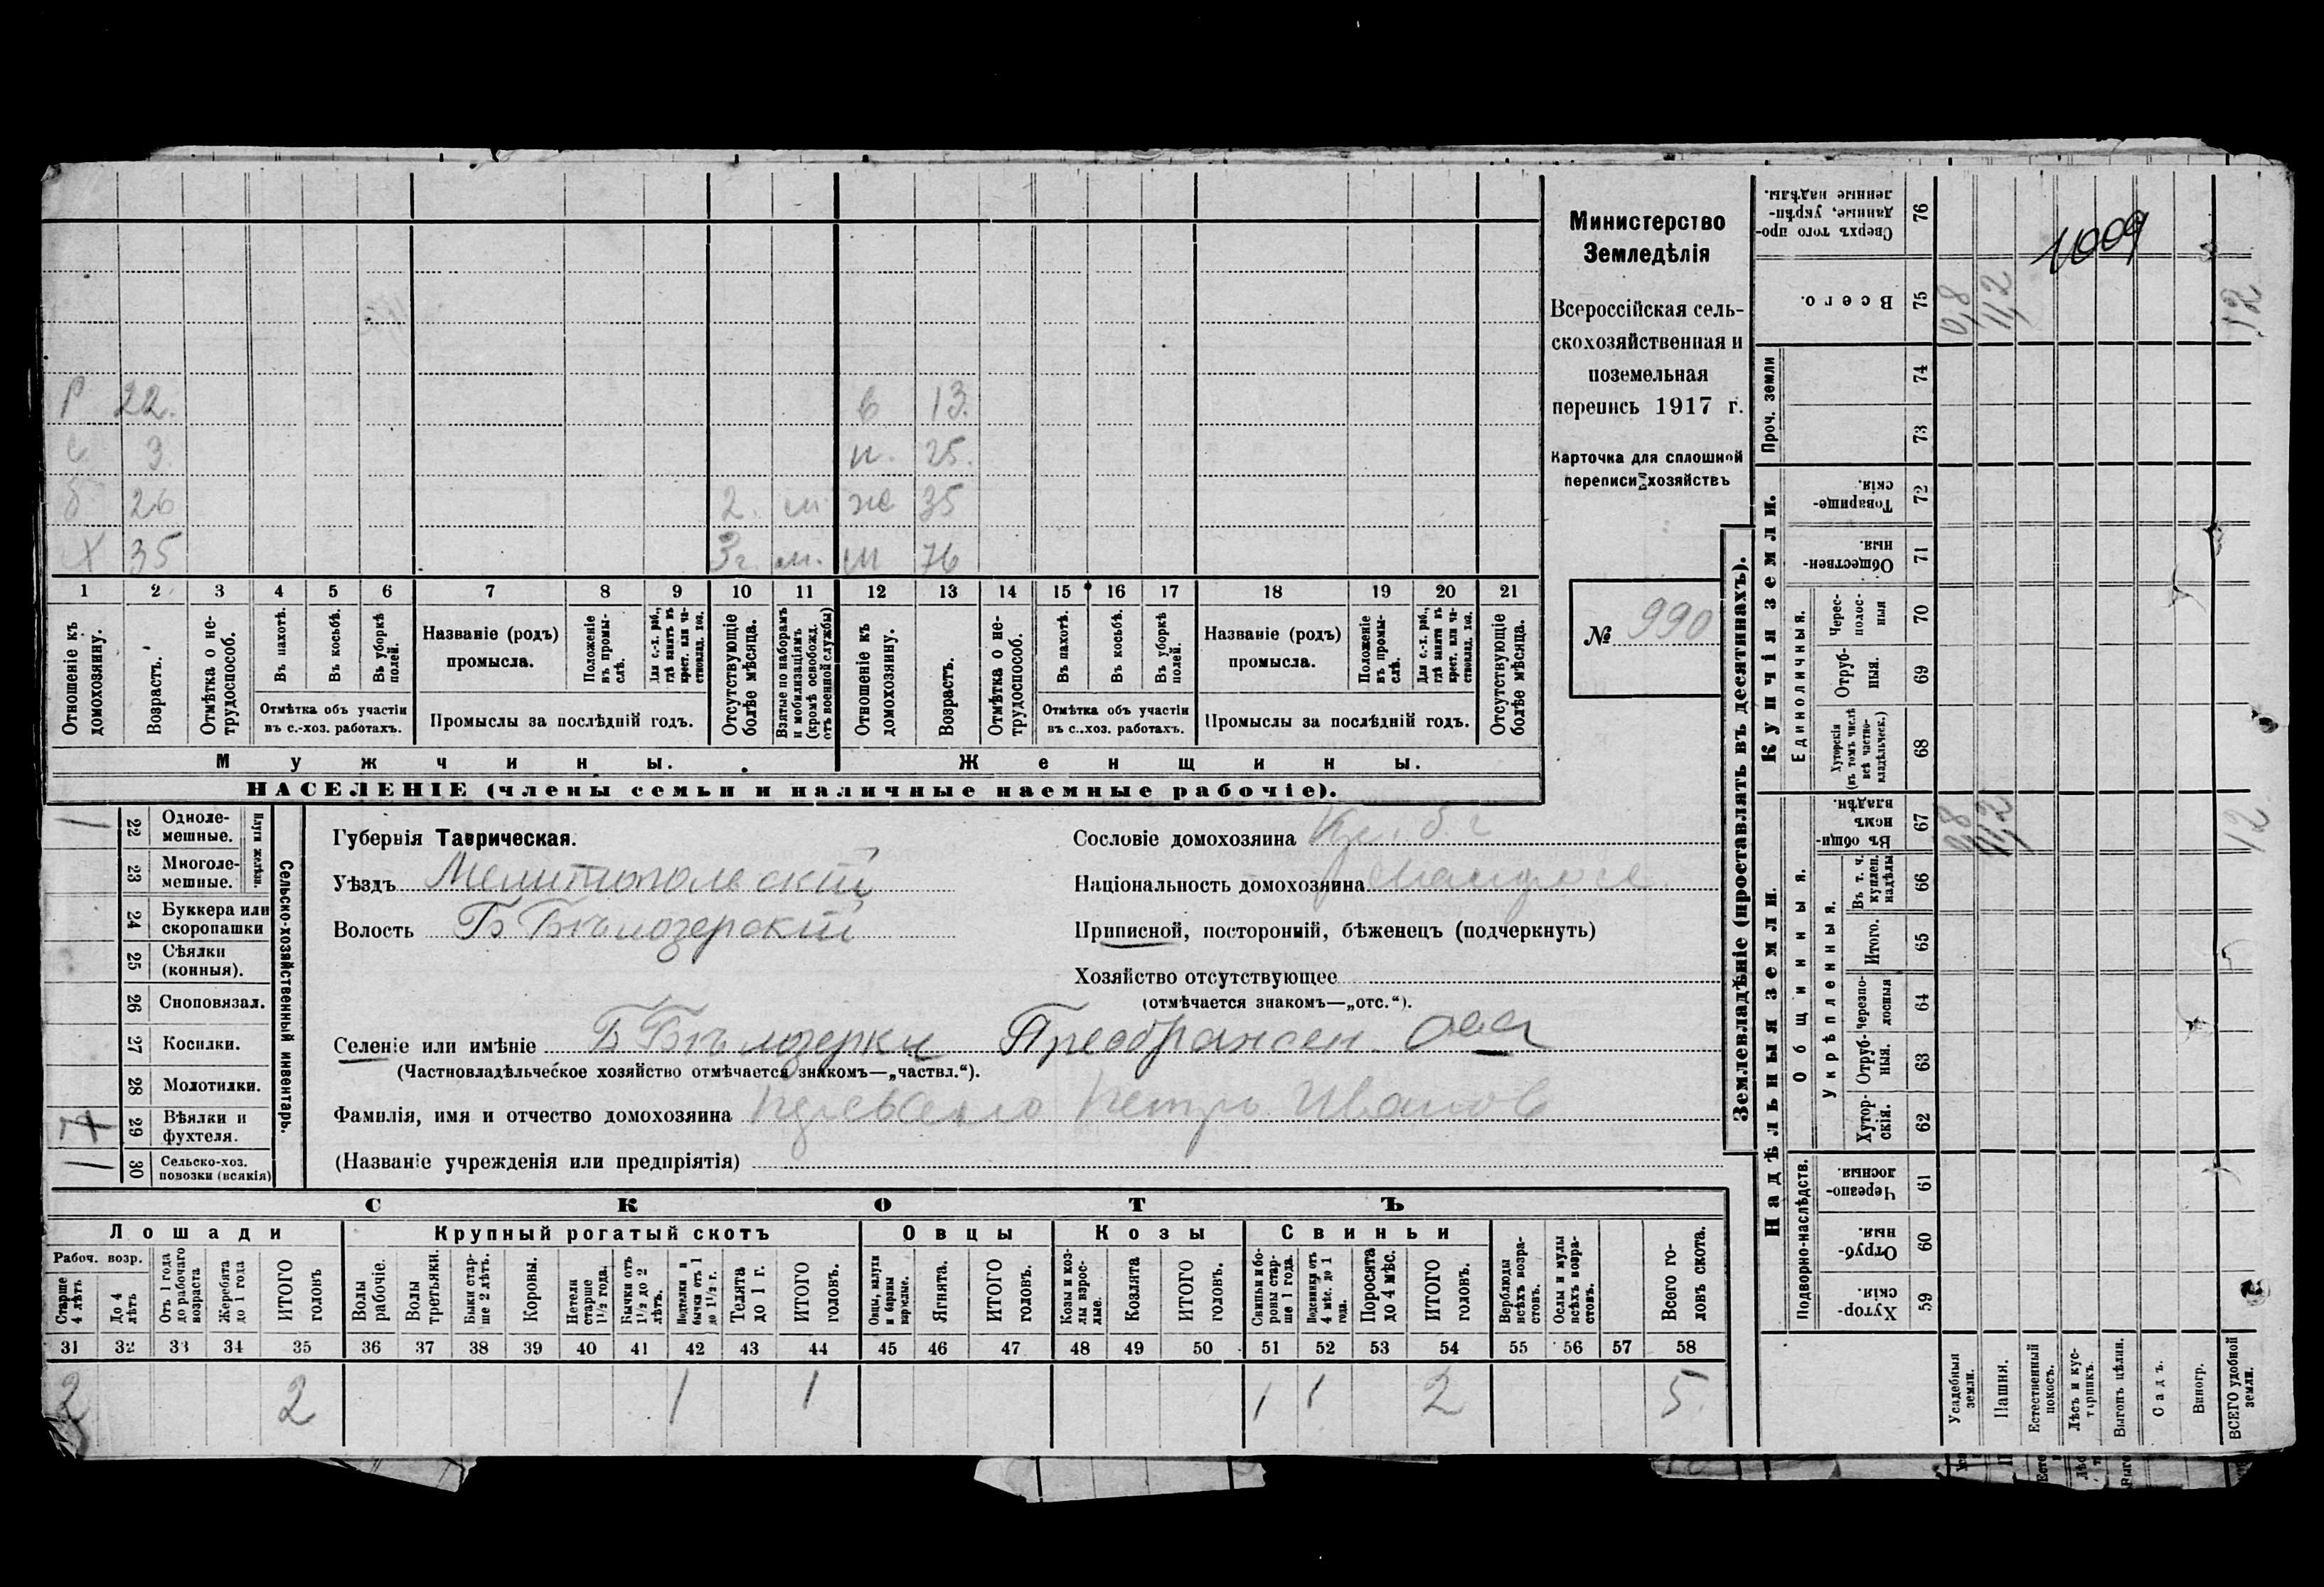 Р 22. в 13.
с 3. н. 25.
б 26 2. м ж 35
Х 35 3г. м. м 76
1 2 3 4 5 6 7 8 9 10 11 12 13 14 15 16 17 18 19 20 21
Отношеніе къ домохозяину.
Возрастъ.
Отмѣтка о нетрудоспособ.
Въ пахотѣ.
Въ косьбѣ.
Въ уборкѣ полей.
Отмѣтка объ участіи въ с.-хоз. работахъ.
Названіе (родъ) промысла.
Положеніе въ промыслѣ.
Для с.-х. раб., гдѣ занятъ въ крест. или частновлад. хоз.
Промыслы за послѣдній годъ.
Отсутствующіе болѣе мѣсяца.
Взятые по наборамъ и мобилизаціямъ (кромѣ освобожд. отъ военной службы)
Отношеніе къ домохозяину.
Возрастъ.
Отмѣтка о нетрудоспособ.
Въ пахотѣ.
Въ косьбѣ.
Въ уборкѣ полей.
Отмѣтка объ участіи въ с.-хоз. работахъ.
Названіе (родъ) промысла.
Положеніе въ промыслѣ.
Для с.-х. раб., гдѣ занята въ крест. или частновлад. хоз.
Промыслы за послѣдній годъ.
Отсутствующіе болѣе мѣсяца.
Мужчины. Женщины.
НАСЕЛЕНІЕ (члены семьи и наличные наемные рабочіе).
Министерство
Земледѣлія
Всероссійская сель-
скохозяйственная и
поземельная
перепись 1917 г.
Карточка для сплошной
переписи хозяйствъ
№ 990
Сельско-хозяйственный инвентарь.
Плуги желѣзн.
22 Однолемешные. 1
23 Многолемешные.
24 Буккера или скоропашки
25 Сѣялки (конныя).
26 Сноповязал.
27 Косилки.
28 Молотилки.
29 Вѣялки и фухтеля.
30 Сельско-хоз. повозки (всякія) 1
Губернія Таврическая.
Уѣздъ Мелитопольскій
Волость Б Бѣлозерскій
Сословіе домохозяина
Національность домохозяина
Приписной, посторонній, бѣженецъ (подчеркнуть)
Хозяйство отсутствующее
(отмѣчается знакомъ—„отс.“).
Селеніе или имѣніе Б Бѣлозерки Преображен.
(Частновладѣльческое хозяйство отмѣчается знакомъ—„частвл.“).
Фамилія, имя и отчество домохозяина Петръ Иванов
(Названіе учрежденія или предпріятія)
СКОТЪ
Лошади Крупный рогатый скотъ Овцы Козы Свиньи
Рабоч. возр.
Старше 4 лѣтъ
До 4 лѣтъ
Отъ 1 года до рабочаго возраста
Жеребята до 1 года
ИТОГО головъ
Волы рабочіе.
Волы третьяки.
Быки старше 2 лѣтъ.
Коровы.
Нетели старше 1 1/2 года.
Бычки отъ 1 1/2 до 2 лѣтъ.
Подтелки и бычки отъ 1 до 1 1/2 г.
Телята до 1 г.
ИТОГО головъ.
Овцы, валухи и бараны взрослые.
Ягнята.
ИТОГО головъ.
Козы и козлы взрослые.
Козлята
ИТОГО головъ.
Свиньи и боровы старше 1 года.
Подсвинки отъ 4 мѣс. до 1 года.
Поросята до 4 мѣс.
ИТОГО головъ.
Верблюды всѣхъ возрастовъ.
Ослы и мулы всѣхъ возрастовъ.
Всего головъ скота.
31 32 33 34 35 36 37 38 39 40 41 42 43 44 45 46 47 48 49 50 51 52 53 54 55 56 57 58
2 2 1 1 1 1 2 5.
Землевладѣніе (проставлять въ десятинахъ).
Купчія земли.
Надѣльныя земли.
Проч. земли
Сверхъ того проданные, укрѣпленные надѣлы. 76
1009
Всего. 75 0,8 11,2 12
74
73
Товарищескія. 72
Общественныя. 71
Единоличныя.
Чересполосныя 70
Отрубныя. 69
Хуторскія (въ томъ числѣ всѣ частновладѣльческ.) 68
Общинныя.
Въ общинномъ владѣн. 67 0,8 11,2 12
Укрѣпленныя.
Въ т. ч. куплен. надѣлы 66
Итого. 65
Черезполосныя 64
Отрубныя. 63
Хуторскія. 62
Подворно-наслѣдств.
Черезполосныя 61
Отрубныя. 60
Хуторскія. 59
Усадебныя земли.
Пашня.
Естественный покосъ.
Лѣсъ и кустарникъ.
Выгонъ цѣлин.
Садъ.
Виногр.
ВСЕГО удобной земли.